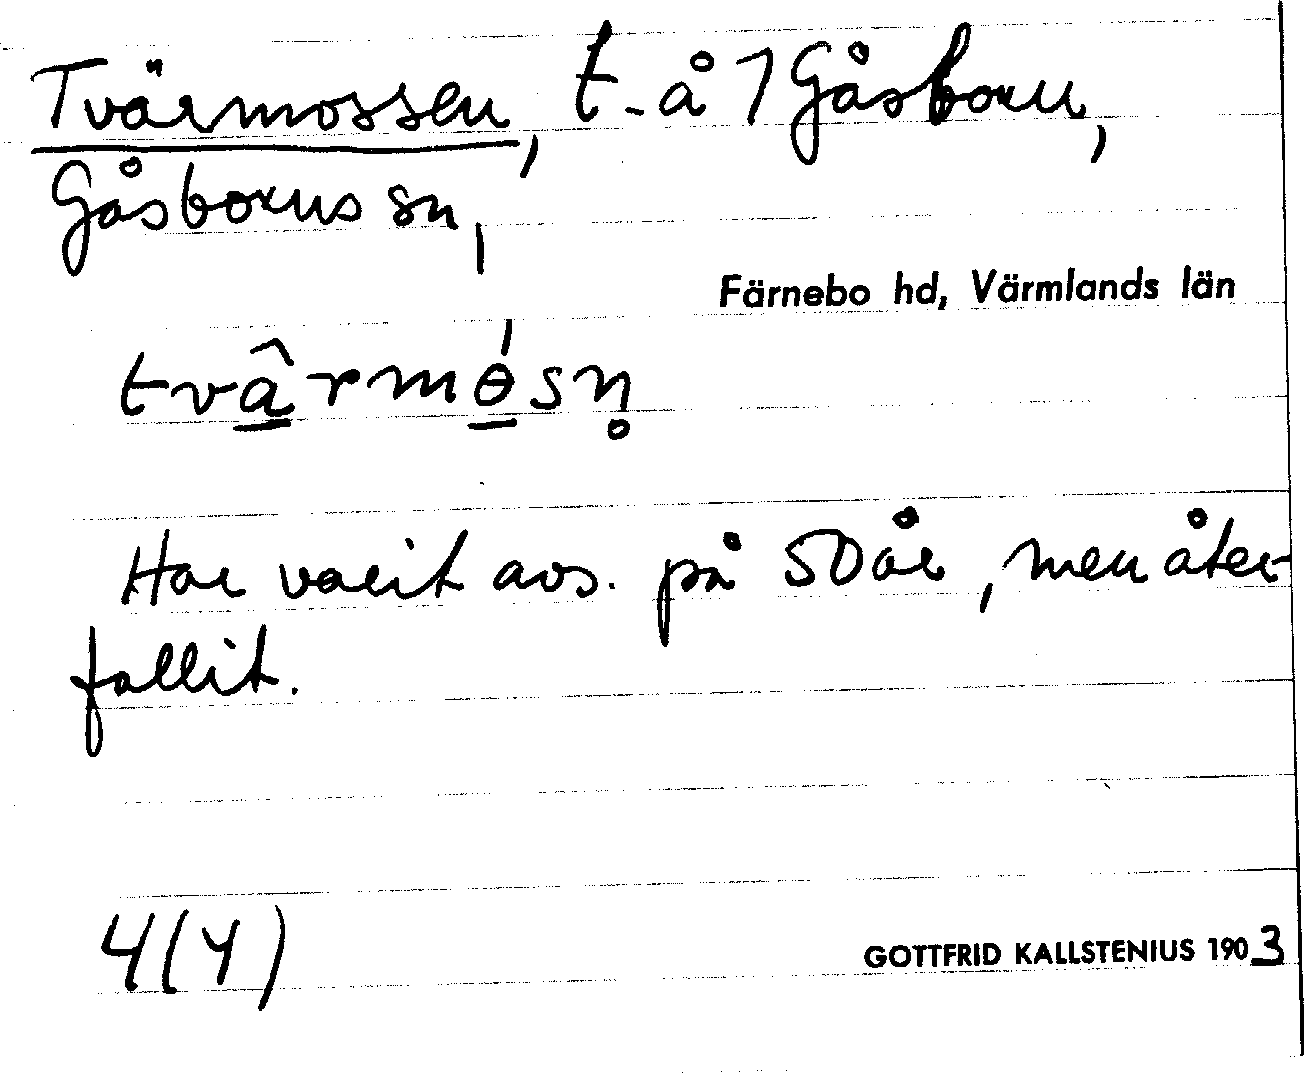 Tvärmossen, t. å 1 Gåsborn,
Gåsborns sn,
Färnebo hd, Värmlands län
tvâ̱rmɵ̱́sn̥
Har varit avs. på 50 år, men åter-
fallit.
4(4)
GOTTFRID KALLSTENIUS 1903